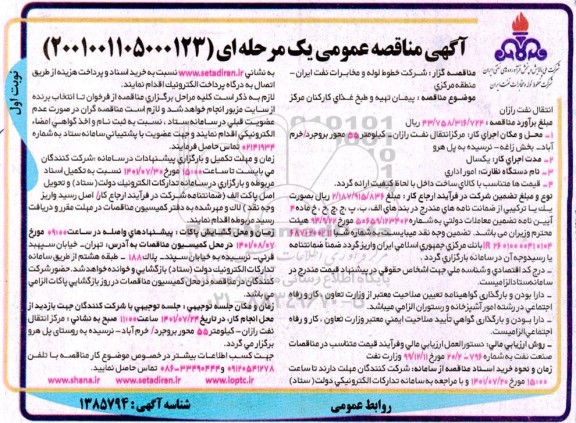 آگهی مناقصه عمومی یک مرحله ای (۲۰۰۱۰۰۱۱۰۵۰۰۰۱۲۳)
نوبت اول
مناقصه گزار : شرکت خطوط لوله و مخابرات نفت ایران -
منطقه مرکزی
موضوع مناقصه : پیمان تهیه و طبخ غذای کارکنان مرکز
انتقال نفت رازان
مبلغ برآورد مناقصه : ۴۳/۷۵۸/۳۱۶/۷۲۳ ریال
۱- محل و مکان اجرای کار: مرکز انتقال نفت رازان - کیلومتر ۵۵ محور بروجرد/خرم
آباد- بخش زاغه- نرسیده به پل هرو
۲- مدت اجرای کار: یکسال
۳- نام دستگاه نظارت: امور اداری
۴- قیمت ها متناسب با کالای ساخت داخل با لحاظ کیفیت ارائه گردد.
نوع و مبلغ تضمین شرکت در فرآیند ارجاع کار: مبلغ ۲/۱۸۷/۹۱۵/۸۳۶ ریال بصورت
یک یا ترکیبی از ضمانت نامه های مندرج در بندهای الف، ب، پ، ج، چ، ح، خ ماده ۴
آیین نامه تضمین معاملات دولتی به شماره ۱۲۳۴۰۲/ت۵۰۶۵۹ه مورخ ۹۴/۹/۲۲ هیئت
محترم وزیران می باشد.
بانک مرکزی جمهوری اسلامی ایران واریز گردد ضمناً ضمانتنامه
یا رسید وجه آن در سامانه بارگزاری گردد.
- درج کد اقتصادی و شناسه ملی جهت اشخاص حقوقی در پیشنهاد قیمت مندرج در
سامانه ستاد الزامیست.
- دارا بودن و بارگذاری گواهینامه تعیین صلاحیت معتبر از وزارت تعاون ، کار و رفاه
اجتماعی در رشته امور آشپزخانه و رستوران الزامی میباشد.
- دارا بودن و بارگذاری گواهی تأیید صلاحیت ایمنی معتبر وزارت تعاون ، کار و رفاه
اجتماعی الزامیست.
- روش ارزیابی مالی: دستورالعمل ارزیابی مالی و فرآیند قیمت متناسب در مناقصات
صنعت نفت به شماره ۷۹۶-۲۰/۲ مورخ ۹۹/۱۲/۱۱ وزارت نفت
زمان و نحوه خرید اسناد مناقصه از سامانه: شرکت کنندگان مهلت دارند تا ساعت
۱۵:۰۰ مورخ ۱۴۰۱/۰۷/۲۰ با مراجعه به سامانه تدارکات الکترونیکی دولت (ستاد)
به نشانی www.setadiran.ir نسبت به خرید اسناد و پرداخت هزینه از طریق
اتصال به درگاه پرداخت الکترونیک اقدام نمایند.
لازم به ذکر است کلیه مراحل برگزاری مناقصه از فرخوان تا انتخاب برنده
از سایت مزبور انجام خواهد شد و لازم است مناقصه گران در صورت عدم
عضویت قبلی در سامانه ستاد ، نسبت به ثبت نام و اخذ گواهی امضاء
الکترونیکی اقدام نمایند و جهت عضویت با پشتیبانی سامانه ستاد به شماره
۰۲۱۴۱۹۳۴ تماس حاصل فرمایند.
زمان و مهلت تکمیل و بارگزاری پیشنهادات در سامانه: شرکت کنندگان
می بایست تا ساعت ۱۵:۰۰ مورخ ۱۴۰۱/۰۷/۲۰ نسبت به تکمیل اسناد
مربوطه و بارگذاری در سامانه تدارکات الکترونیک دولت (ستاد) و تحویل
اصل پاکت الف (ضمانتنامه شرکت در فرآیند ارجاع کار/ اصل رسید واریز
وجه نقد) لاک و مهر شده به دفتر کمیسیون مناقصات در مهلت مقرر و دریافت
رسید مربوطه اقدام نمایند.
زمان و محل گشایش پاکات : پیشنهادهای واصله در ساعت ۰۹:۰۰ مورخ
۱۴۰۱/۰۸/۰۷ در محل کمیسیون مناقصات به آدرس: تهران- خیابان سپهبد
قرنی- نرسیده به خیابان سپند- پلاک ۱۸۸ - طبقه هشتم از طریق سامانه
تدارکات الکترونیک دولت (ستاد) بازگشایی و خوانده خواهد شد. حضور شرکت
کنندگان در مناقصه در محل کمیسیون مناقصات در روز بازگشایی پاکات الزامی
نمی باشد.
زمان و مکان جلسه توجیهی : جلسه توجیهی با شرکت کنندگان جهت بازدید از
محل انجام کار، در تاریخ ۱۴۰۱/۰۷/۲۴ ساعت ۱۱:۰۰ صبح به نشانی : مرکز انتقال
نفت رازان- کیلومتر ۵۵ محور بروجرد/خرم آباد- نرسیده به روستای پل هرو
برگزار می گردد.
جهت کسب اطلاعات بیشتر در خصوص موضوع کار مناقصه با تلفن
۰۹۱۲۰۵۴۱۲۷۸ و ۳۳۴۹۰۴۴۴-۰۸۶ تماس حاصل نمایید.
www.shana.ir www.setadiran.ir www.ioptc.ir
روابط عمومی
شناسه آگهی : ۱۳۸۵۷۹۴